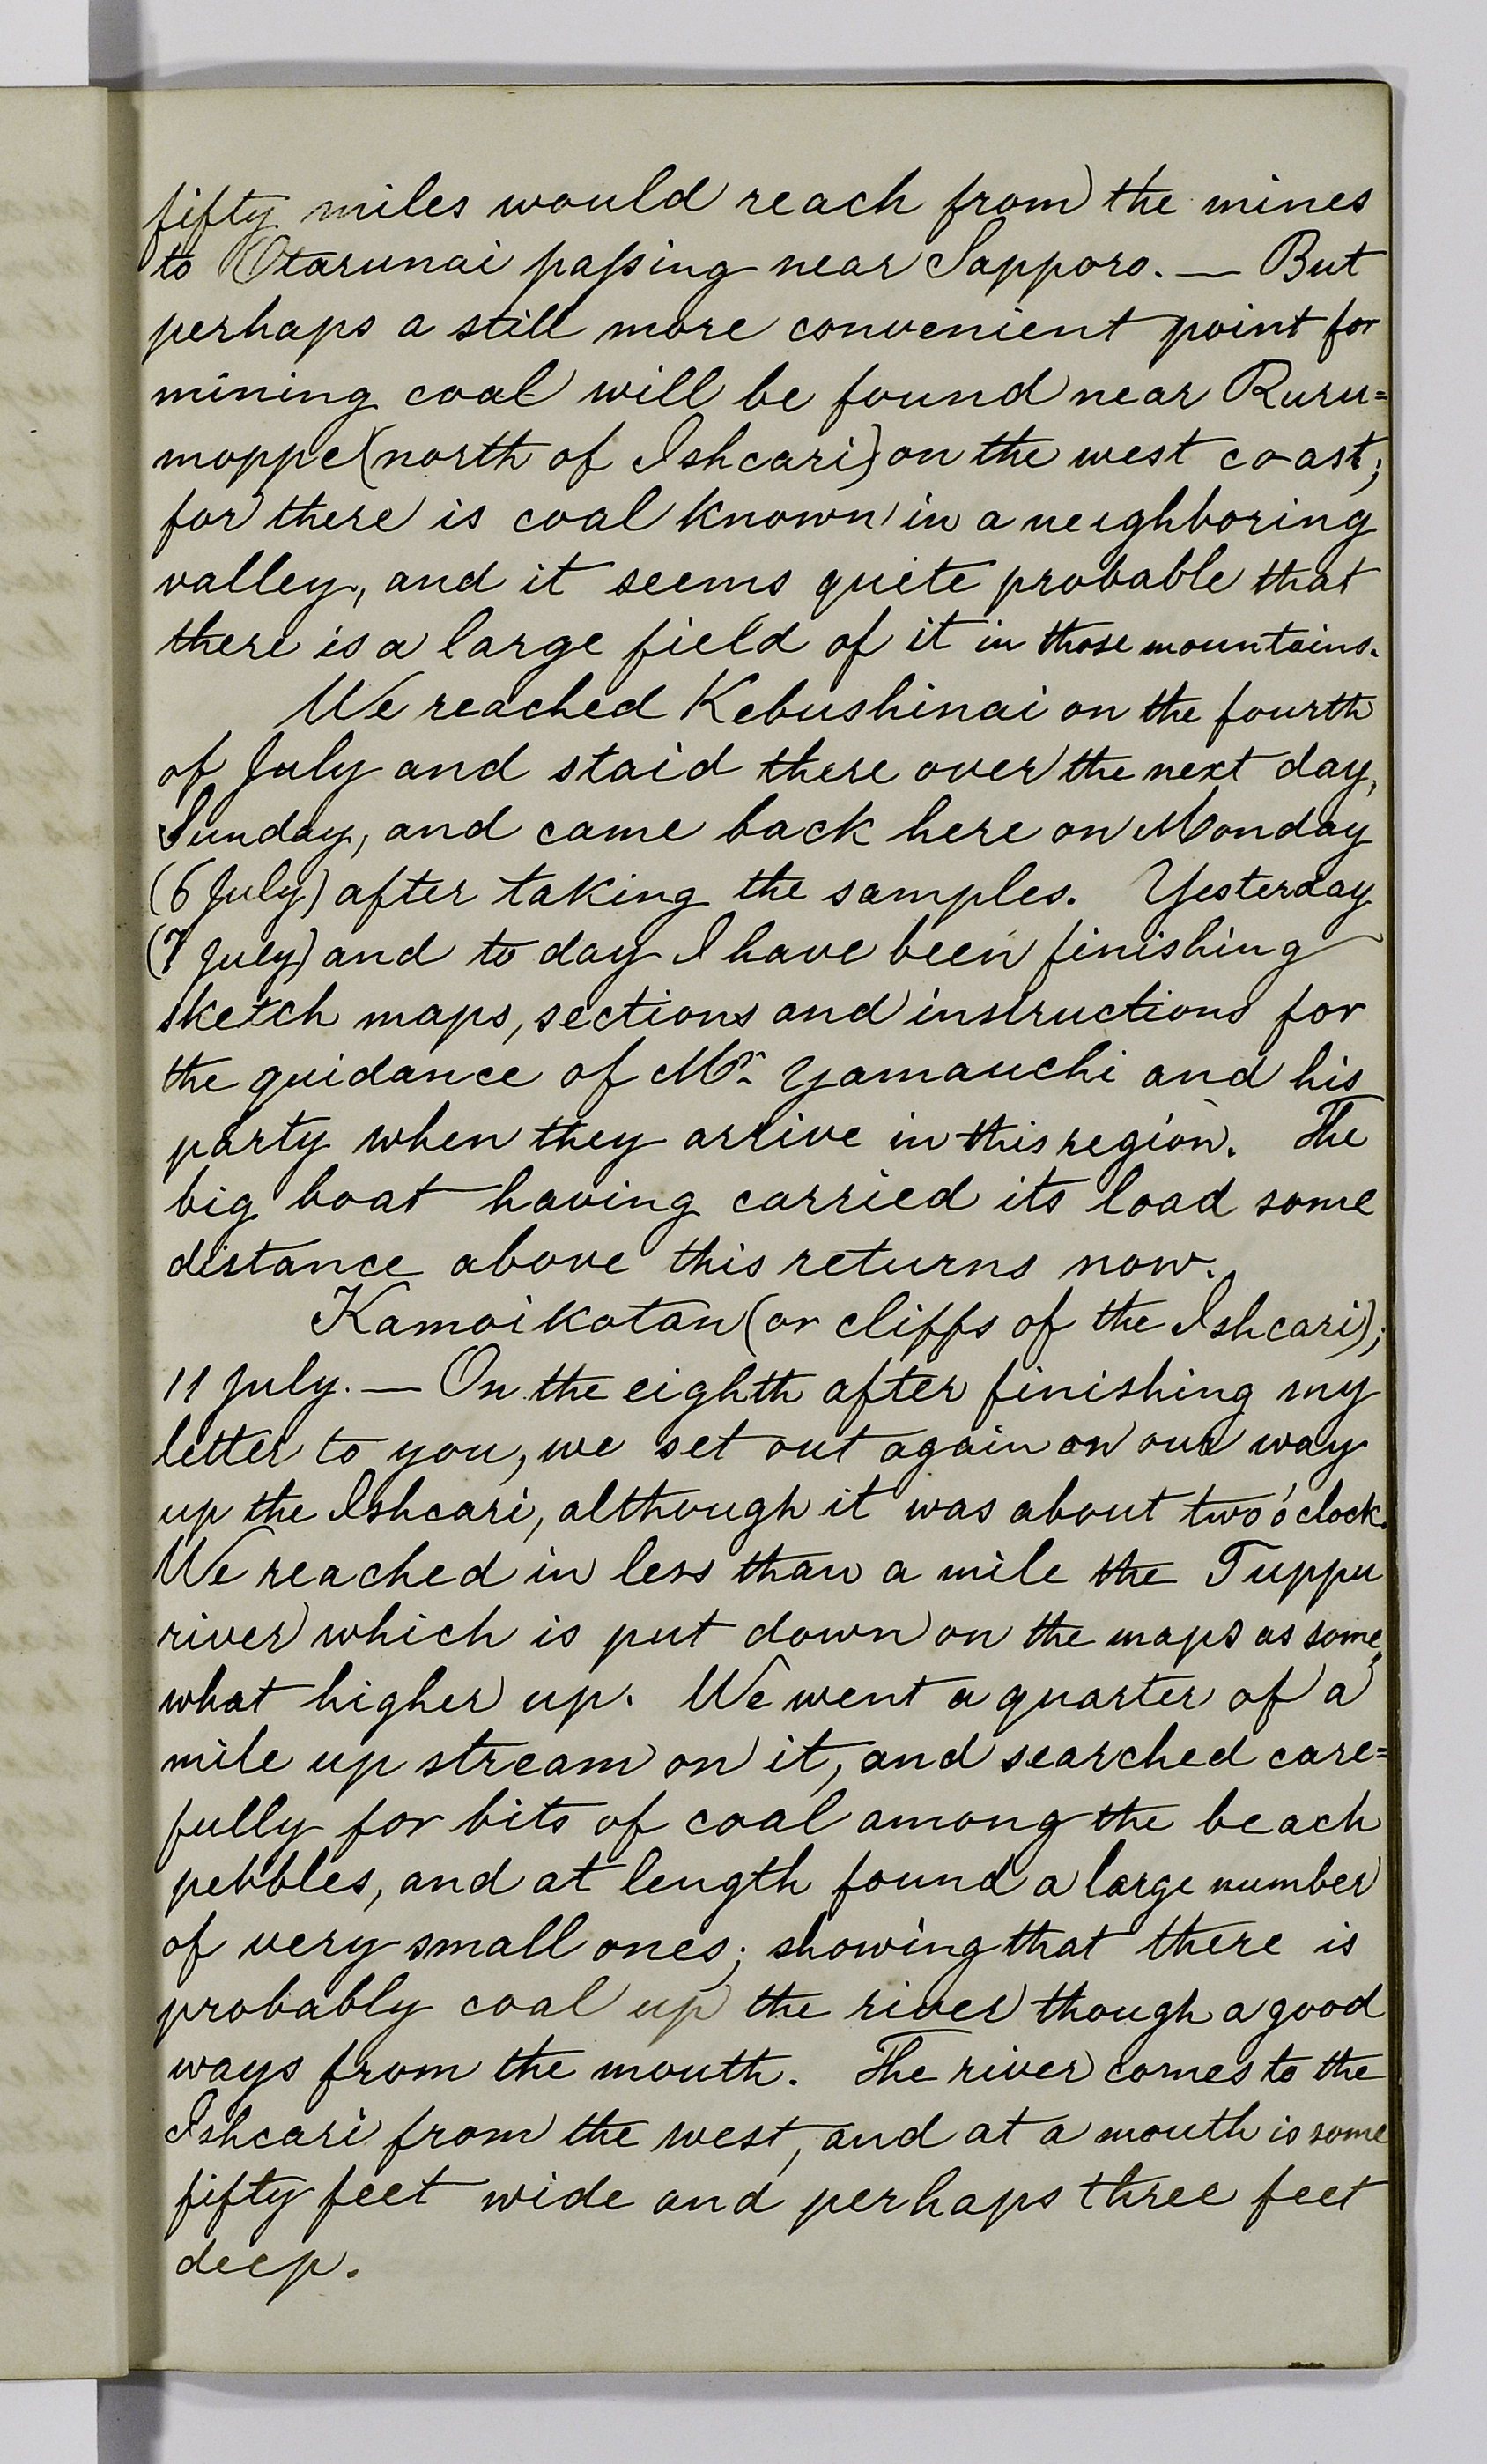 fifty miles would reach from the mines
to Otarunai passing near Sapporo. — But
perhaps a still more convenient point for
mining coal will be found near Ruru=
moppe (north of Ishcari) on the west coast;
for there is coal known in a neighboring
valley, and it seems quite probable that
there is a large field of it in those mountains.
We reached Kebushinai on the fourth
of July and staid there over the next day,
Sunday, and came back here on Monday
(6 July) after taking the samples. Yesterday
(7 July) and to day I have been finishing
sketch maps, sections and instructions for
the guidance of Mr. Yamauchi and his
party when they arrive in this region. The
big boat having carried its load some
distance above this returns now.
Kamoikotan (or cliffs of the Ishcari);
11 July. — On the eighth after finishing my
letter to you, we set out again on our way
up the Ishcari, although it was about two o'clock.
We reached in less than a mile the Tuppu
river which is put down on the maps as some=
what higher up. We went a quarter of a
mile up stream on it, and searched care=
fully for bits of coal among the beach
pebbles, and at length found a large number
of very small ones; showing that there is
probably coal up the river though a good
ways from the mouth. The river comes to the
Ishcari from the west, and at a mouth is some
fifty feet wide and perhaps three feet
deep.